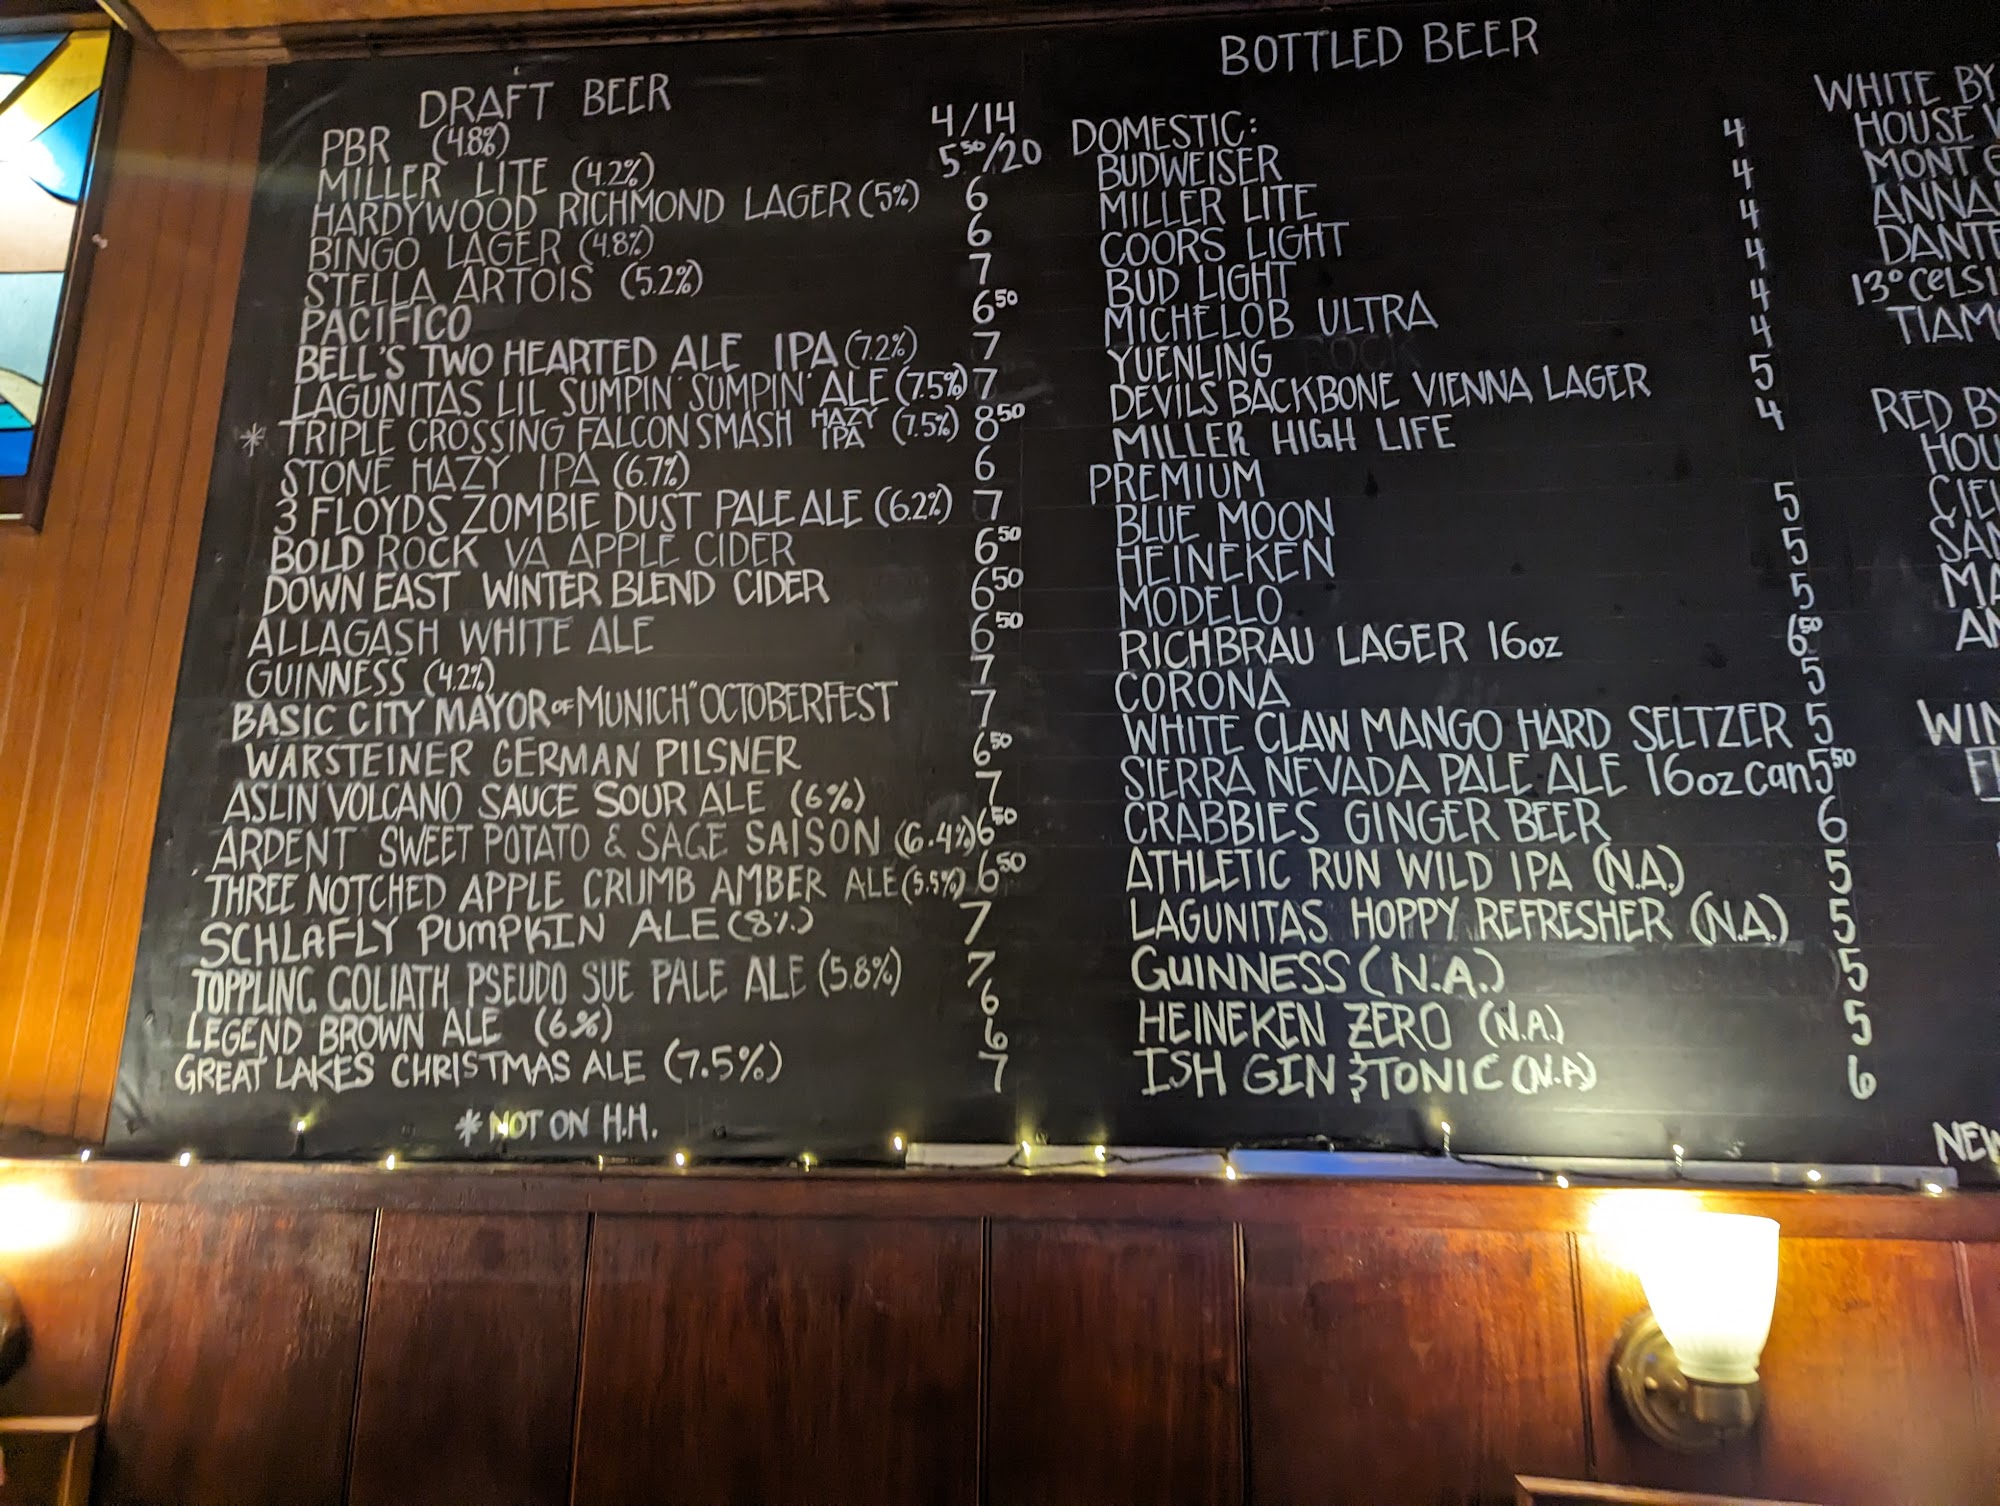 DRAFT BEER
PBR (4.8%) 4/14
MILLER LITE (4.2%) 5⁵⁰/20
HARDYWOOD RICHMOND LAGER (5%) 6
BINGO LAGER (4.8%) 6
STELLA ARTOIS (5.2%) 7
PACIFICO 6⁵⁰
BELL'S TWO HEARTED ALE IPA (7.2%) 7
LAGUNITAS LIL SUMPIN' SUMPIN' ALE (7.5%) 7
* TRIPLE CROSSING FALCON SMASH HAZY IPA (7.5%) 8⁵⁰
STONE HAZY IPA (6.7%) 6
3 FLOYDS ZOMBIE DUST PALE ALE (6.2%) 7
BOLD ROCK VA APPLE CIDER 6⁵⁰
DOWN EAST WINTER BLEND CIDER 6⁵⁰
ALLAGASH WHITE ALE 6⁵⁰
GUINNESS (4.2%) 7
BASIC CITY MAYOR OF MUNICH" OCTOBERFEST 7
WARSTEINER GERMAN PILSNER 6⁵⁰
ASLIN VOLCANO SAUCE SOUR ALE (6%) 7
ARDENT SWEET POTATO & SAGE SAISON (6.4%) 6⁵⁰
THREE NOTCHED APPLE CRUMB AMBER ALE (5.5%) 6⁵⁰
SCHLAFLY PUMPKIN ALE (8%) 7
TOPPLING GOLIATH PSEUDO SUE PALE ALE (5.8%) 7
6
LEGEND BROWN ALE (6%) 6
GREAT LAKES CHRISTMAS ALE (7.5%) 7
* NOT ON H.H.
BOTTLED BEER
DOMESTIC:
BUDWEISER 4
MILLER LITE 4
COORS LIGHT 4
BUD LIGHT 4
MICHELOB ULTRA 4
YUENLING 4
DEVILS BACKBONE VIENNA LAGER 5
MILLER HIGH LIFE 4
PREMIUM
BLUE MOON 5
HEINEKEN 5
MODELO 5
RICHBRAU LAGER 16oz 6⁵⁰
CORONA 5
WHITE CLAW MANGO HARD SELTZER 5
SIERRA NEVADA PALE ALE 16oz can 5⁵⁰
CRABBIES GINGER BEER 6
ATHLETIC RUN WILD IPA (N.A.) 5
LAGUNITAS HOPPY REFRESHER (N.A.) 5
GUINNESS (N.A.) 5
HEINEKEN ZERO (N.A.) 5
ISH GIN & TONIC (N.A) 6
WHITE BY
HOUSE
MONT
ANNA
DANTE
13° CELSI
TIAM
RED BY
HOU
CIE
SAN
MA
WIN
NEW